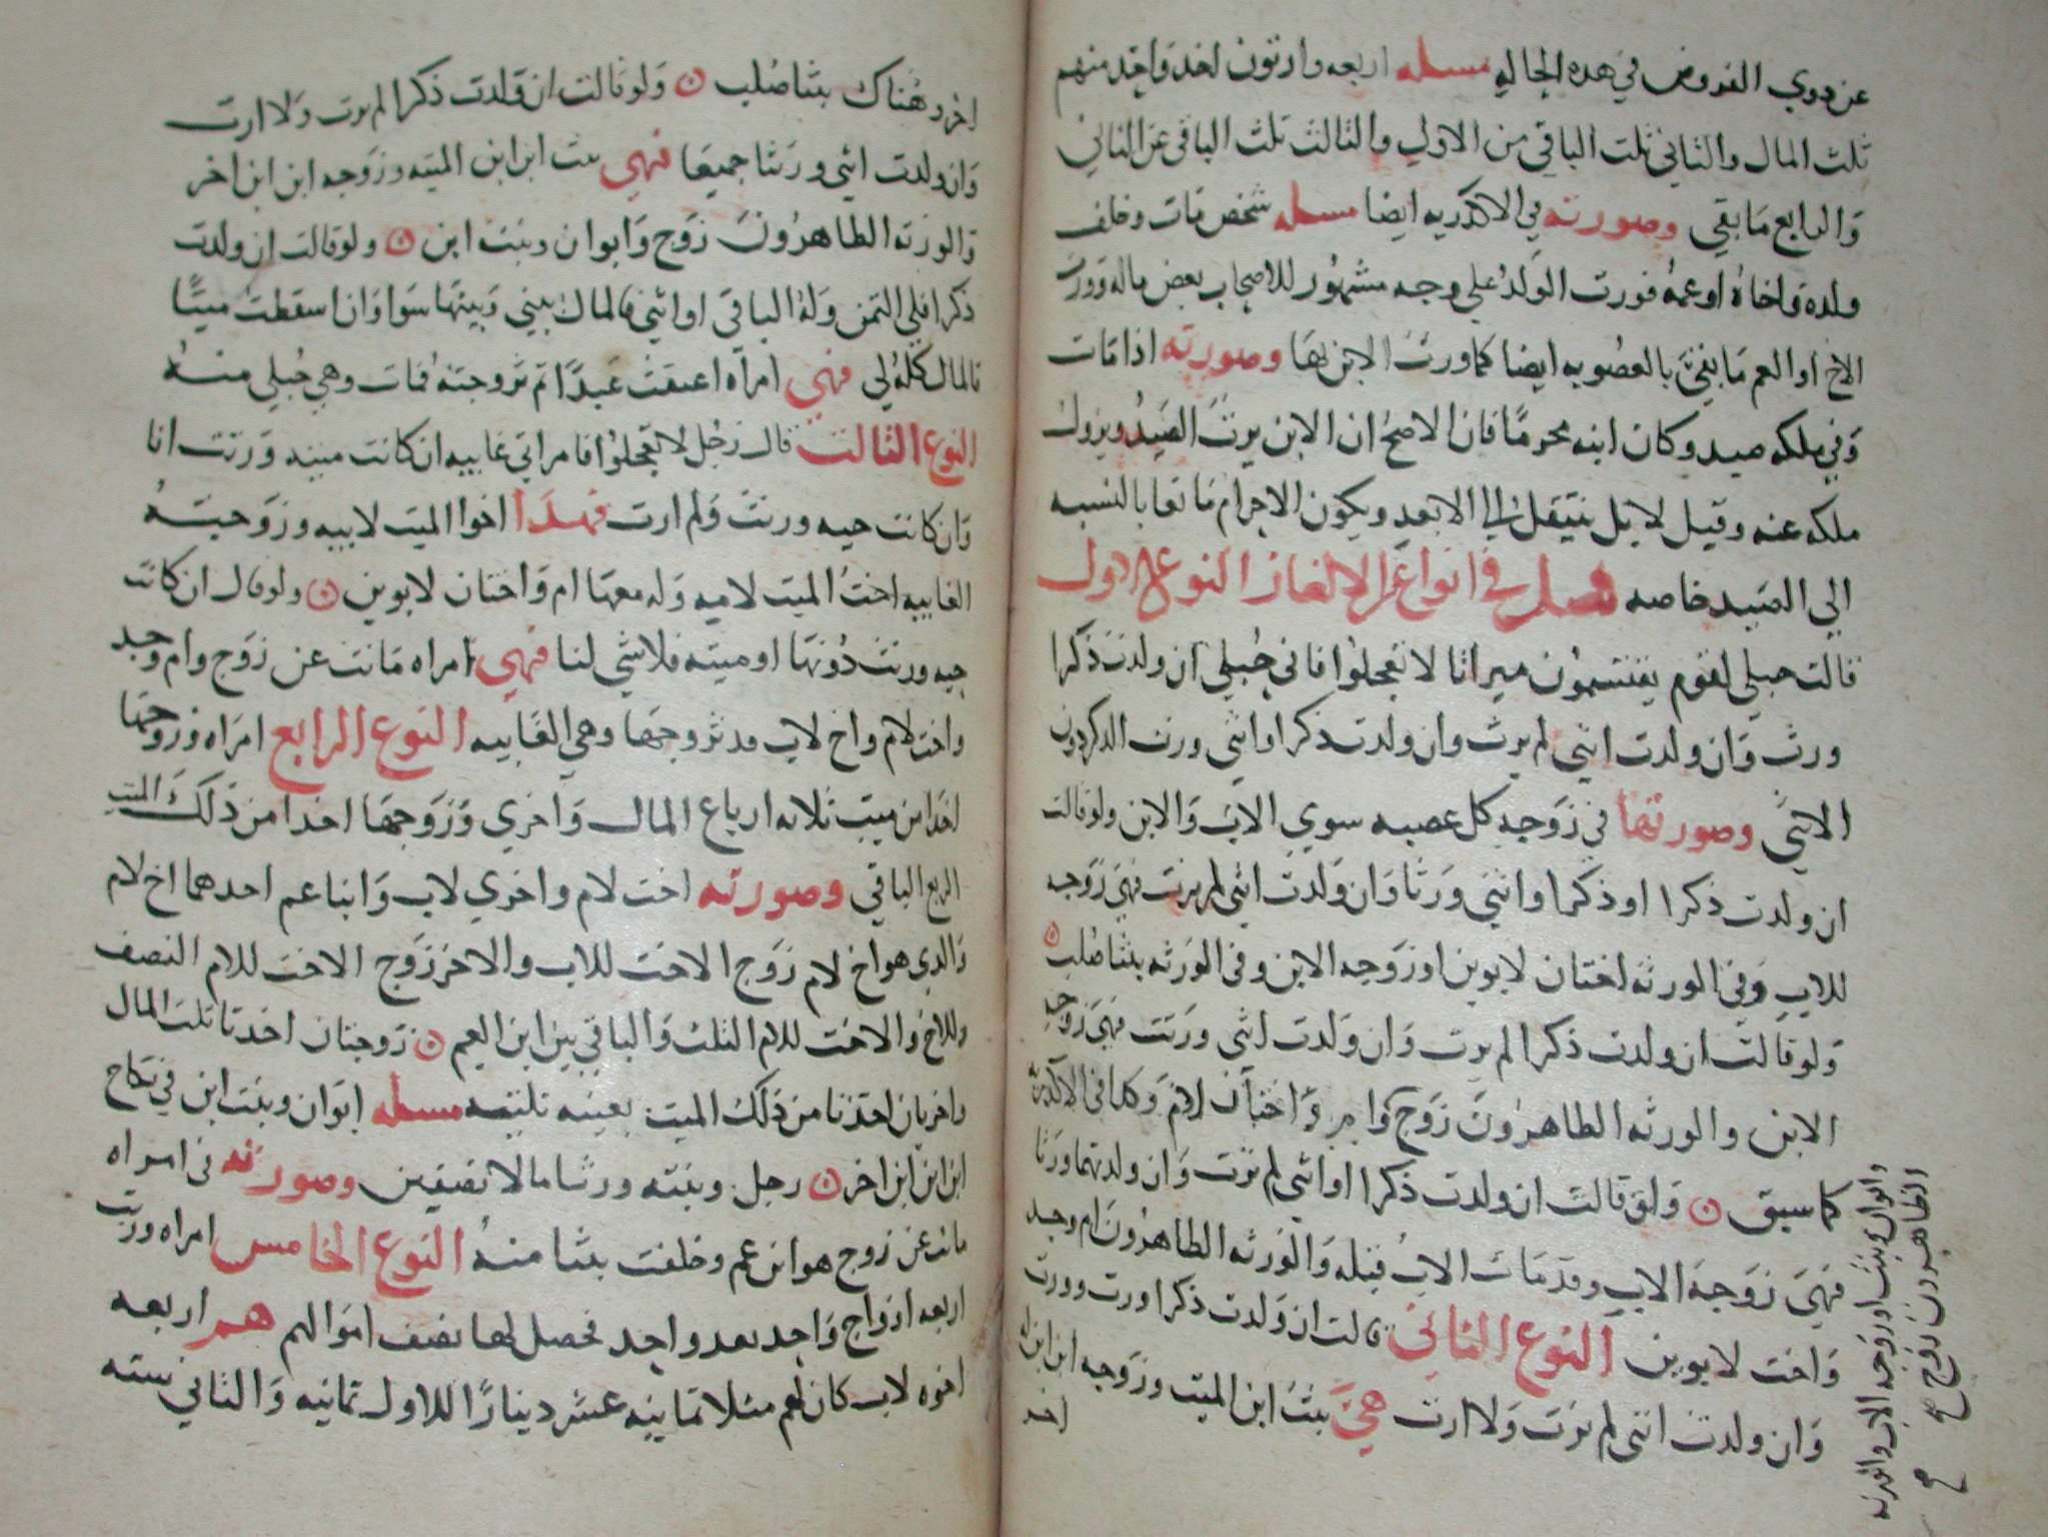 عن ذوي الفروض في هذه الحاله مسله اربعه وارثون اخذ واحد منهم
ثلث المال والثاني ثلث الباقي من الاول والثالث ثلث الباقي عن الثاني
والرابع ما بقي وصورته في الاكدريه ايضا مسله شخص مات وخلف
ولده واخاه او عمه فورث الولد على وجه مشهور للاصحاب بعض ماله وورث
الاخ او العم ما بقي بالعصوبه ايضا كما ورث الابن بها وصورته اذا مات
وفي ملكه صيد وكان ابنه محرما فان الاصح ان الابن يرث الصيد ويزول
ملكه عنه وقيل لا بل ينتقل الى الابعد ويكون الاحرام مانعا بالنسبه
الي الصيد خاصه فصل في انواع من الالغاز النوع الاول
قالت حبلى لقوم يقتسمون ميراثا لا تعجلوا فاني حبلي ان ولدت ذكرا
ورث وان ولدت انثي لم يرث وان ولدت ذكرا وانثي ورث الذكر دون
الانثي وصورتها في زوجه كل عصبه سوي الاب والابن ولو قالت
ان ولدت ذكرا او ذكرا وانثي ورثا وان ولدت انثي لم يرث فهي زوجه
للاب وفي الورثه اختان لابوين او زوجه الابن وفي الورثه بنتا صلب
ولو قالت ان ولدت ذكرا لم يرث وان ولدت انثي ورثت فهي زوجه
الابن والورثه الظاهرون زوج وام واختان لام وكذا في الاكدريه
كما سبق ولو قالت ان ولدت ذكرا او انثي لم يرث وان ولدتهما ورثا
فهي زوجة الاب وقد مات الاب قبله والورثه الظاهرون ام وجد
واخت لابوين النوع الثاني قالت ان ولدت ذكرا ورث وورثت
وان ولدت انثي لم ترث ولا ارث هي بنت ابن الميت وزوجه ابن ابن له
اخر
وابوان وبنت او زوجه الاب والورثه
الظاهرون زوج
اخر وهناك بنتا صلب ولو قالت ان ولدت ذكرا لم يرث ولا ارث
وان ولدت انثي ورثنا جميعا فهي بنت ابن ابن الميته وزوجه ابن ابن اخر
والورثه الظاهرون زوج وابوان وبنت ابن ولو قالت ان ولدت
ذكرا فلي الثمن وله الباقي او انثي فالمال بيني وبينها سوا وان اسقطت ميتا
فالمال كله لي فهي امراه اعتقت عبدا ثم تزوجته فمات وهي حبلي منه
النوع الثالث قال رجل لا تعجلوا فامراتي غايبه ان كانت ميته ورثت انا
وان كانت حيه ورثت ولم ارث فهذا اخو الميت لابيه وزوجته
الغايبه اخت الميت لاميه وله معها ام واختان لابوين ولو قال ان كانت
حيه ورثت دونها او ميته فلا شي لنا فهي امراه ماتت عن زوج وام وجد
واخت لام واخ لاب قد تزوجها وهي الغايبه النوع الرابع امراه وزوجها
اخذا من ميت ثلاثه ارباع المال واخري وزوجها اخذا من ذلك الميت
الربع الباقي وصورته اخت لام واخري لاب وابنا عم احدهما اخ لام
والذي هو اخ لام زوج الاخت للاب والاخر زوج الاخت للام النصف
وللاخ والاخت للام الثلث والباقي بين ابن العم زوجتان اخذتا ثلث المال
واخريان اخذتا من ذلك الميت بعينه ثلثيه مسله ابوان وبنت ابن في نكاح
ابن ابن ابن اخر رجل وبنته ورثا مالا نصفين وصورته في امراه
ماتت عن زوج هو ابن عم وخلفت بنتا منه النوع الخامس امراه ورثت
اربعه ازواج واحد بعد واحد فحصل لها نصف اموالهم هم اربعه
اخوه لاب كان لهم مثلا ثمانيه عشر دينارا للاول ثمانيه والثاني سته